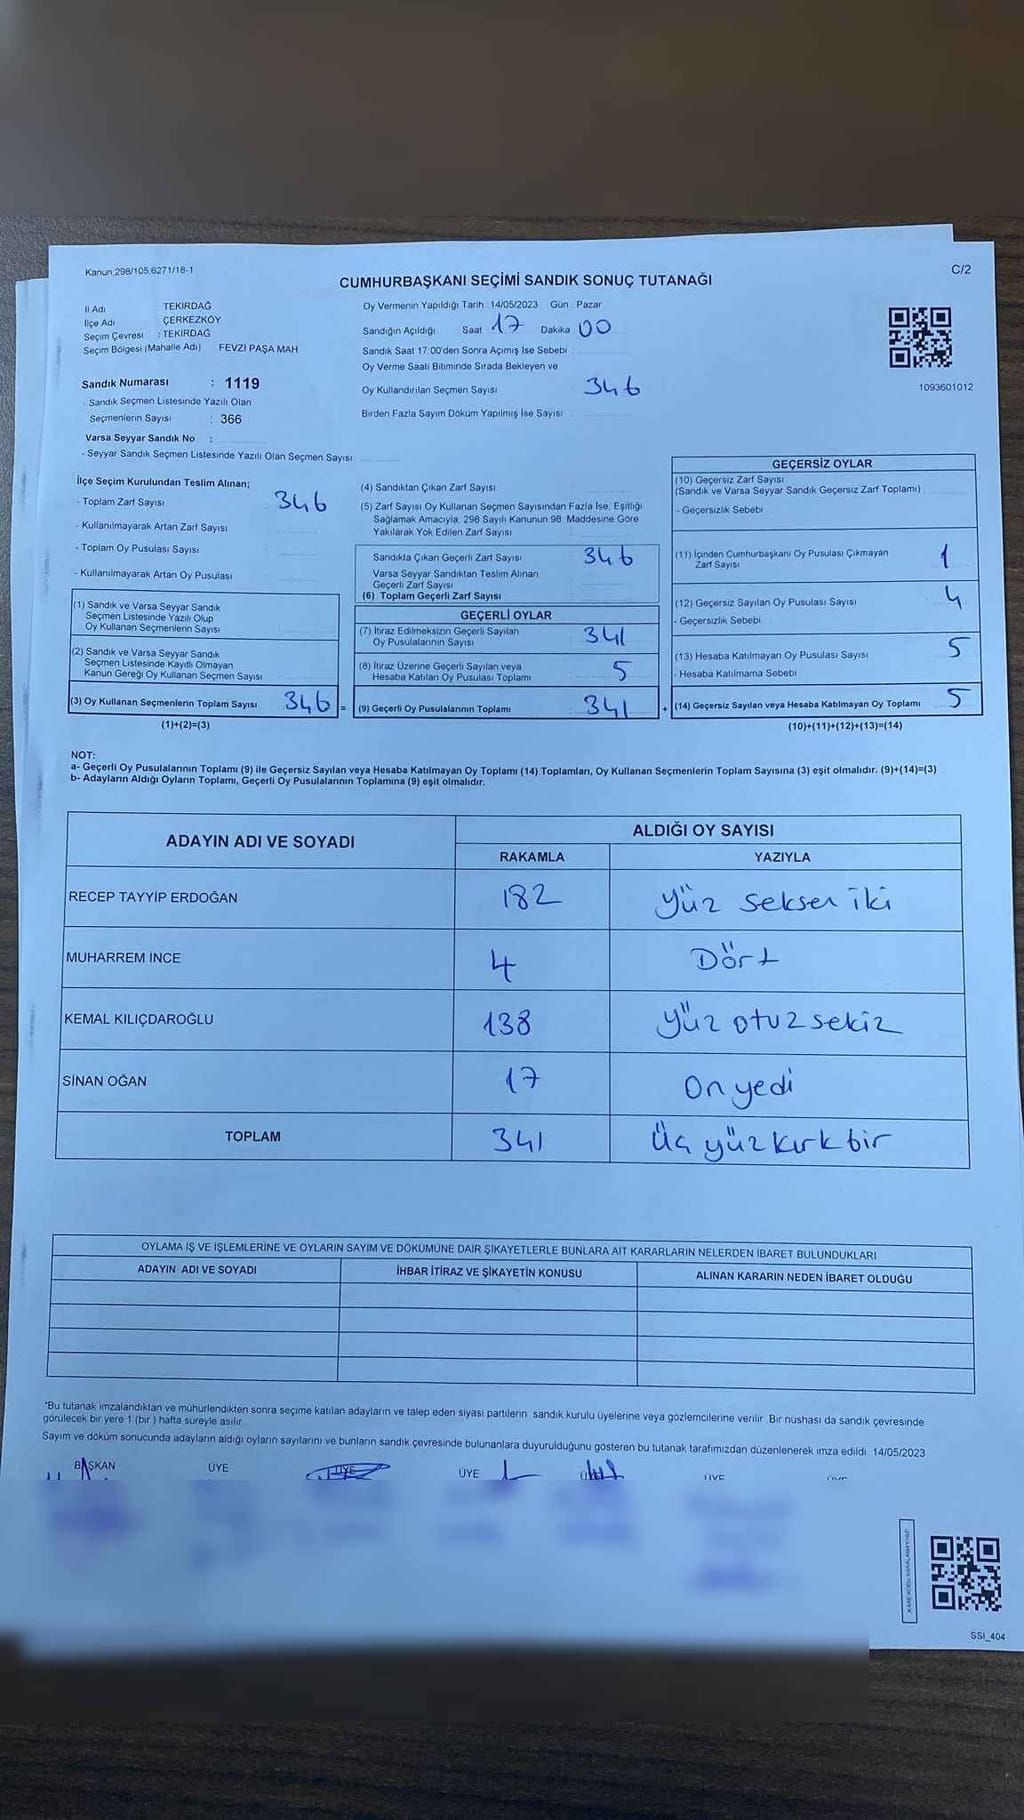 Kanun.298/105,6271/18-1
C/2
CUMHURBAŞKANI SEÇİMİ SANDIK SONUÇ TUTANAĞI
İl Adı TEKİRDAĞ
İlçe Adı ÇERKEZKÖY
Seçim Çevresi : TEKİRDAĞ
Seçim Bölgesi (Mahalle Adı) FEVZİ PAŞA MAH
Oy Vermenin Yapıldığı Tarih : 14/05/2023 Gün : Pazar
Sandığın Açıldığı Saat 17 Dakika 00
Sandık Saat 17:00'den Sonra Açımış İse Sebebi
Oy Verme Saati Bitiminde Sırada Bekleyen ve
Oy Kullandırılan Seçmen Sayısı 346
Birden Fazla Sayım Döküm Yapılmış İse Sayısı
1093601012
Sandık Numarası : 1119
- Sandık Seçmen Listesinde Yazılı Olan
Seçmenlerin Sayısı : 366
Varsa Seyyar Sandık No :
- Seyyar Sandık Seçmen Listesinde Yazılı Olan Seçmen Sayısı
İlçe Seçim Kurulundan Teslim Alınan;
- Toplam Zarf Sayısı 346
- Kullanılmayarak Artan Zarf Sayısı
- Toplam Oy Pusulası Sayısı
- Kullanılmayarak Artan Oy Pusulası
(1) Sandık ve Varsa Seyyar Sandık
Seçmen Listesinde Yazılı Olup
Oy Kullanan Seçmenlerin Sayısı
(2) Sandık ve Varsa Seyyar Sandık
Seçmen Listesinde Kayıtlı Olmayan
Kanun Gereği Oy Kullanan Seçmen Sayısı
(3) Oy Kullanan Seçmenlerin Toplam Sayısı 346 =
(1)+(2)=(3)
(4) Sandıktan Çıkan Zarf Sayısı
(5) Zarf Sayısı Oy Kullanan Seçmen Sayısından Fazla İse, Eşitliği
Sağlamak Amacıyla, 298 Sayılı Kanunun 98. Maddesine Göre
Yakılarak Yok Edilen Zarf Sayısı
Sandıkta Çıkan Geçerli Zarf Sayısı 346
Varsa Seyyar Sandıktan Teslim Alınan
Geçerli Zarf Sayısı
(6) Toplam Geçerli Zarf Sayısı
GEÇERLİ OYLAR
(7) İtiraz Edilmeksizin Geçerli Sayılan
Oy Pusulalarının Sayısı 341
(8) İtiraz Üzerine Geçerli Sayılan veya
Hesaba Katılan Oy Pusulası Toplamı 5
(9) Geçerli Oy Pusulalarının Toplamı 341 +
GEÇERSİZ OYLAR
(10) Geçersiz Zarf Sayısı
(Sandık ve Varsa Seyyar Sandık Geçersiz Zarf Toplamı)
- Geçersizlik Sebebi
(11) İçinden Cumhurbaşkanı Oy Pusulası Çıkmayan
Zarf Sayısı 1
(12) Geçersiz Sayılan Oy Pusulası Sayısı 4
- Geçersizlik Sebebi
(13) Hesaba Katılmayan Oy Pusulası Sayısı 5
- Hesaba Katılmama Sebebi
(14) Geçersiz Sayılan veya Hesaba Katılmayan Oy Toplamı 5
(10)+(11)+(12)+(13)=(14)
NOT:
a- Geçerli Oy Pusulalarının Toplamı (9) ile Geçersiz Sayılan veya Hesaba Katılmayan Oy Toplamı (14) Toplamları, Oy Kullanan Seçmenlerin Toplam Sayısına (3) eşit olmalıdır. (9)+(14)=(3)
b- Adayların Aldığı Oyların Toplamı, Geçerli Oy Pusulalarının Toplamına (9) eşit olmalıdır.
ADAYIN ADI VE SOYADI
ALDIĞI OY SAYISI
RAKAMLA YAZIYLA
RECEP TAYYİP ERDOĞAN 182 Yüz seksen iki
MUHARREM İNCE 4 Dört
KEMAL KILIÇDAROĞLU 138 Yüz otuz sekiz
SİNAN OĞAN 17 On yedi
TOPLAM 341 Üç yüz kırk bir
OYLAMA İŞ VE İŞLEMLERİNE VE OYLARIN SAYIM VE DÖKÜMÜNE DAİR ŞİKAYETLERLE BUNLARA AİT KARARLARIN NELERDEN İBARET BULUNDUKLARI
ADAYIN ADI VE SOYADI İHBAR İTİRAZ VE ŞİKAYETİN KONUSU ALINAN KARARIN NEDEN İBARET OLDUĞU
*Bu tutanak imzalandıktan ve mühürlendikten sonra seçime katılan adayların ve talep eden siyasi partilerin sandık kurulu üyelerine veya gözlemcilerine verilir. Bir nüshası da sandık çevresinde
görülecek bir yere 1 (bir) hafta süreyle asılır.
Sayım ve döküm sonucunda adayların aldığı oyların sayılarını ve bunların sandık çevresinde bulunanlara duyurulduğunu gösteren bu tutanak tarafımızdan düzenlenerek imza edildi. 14/05/2023
BAŞKAN ÜYE ÜYE ÜYE ÜYE
SSI_404